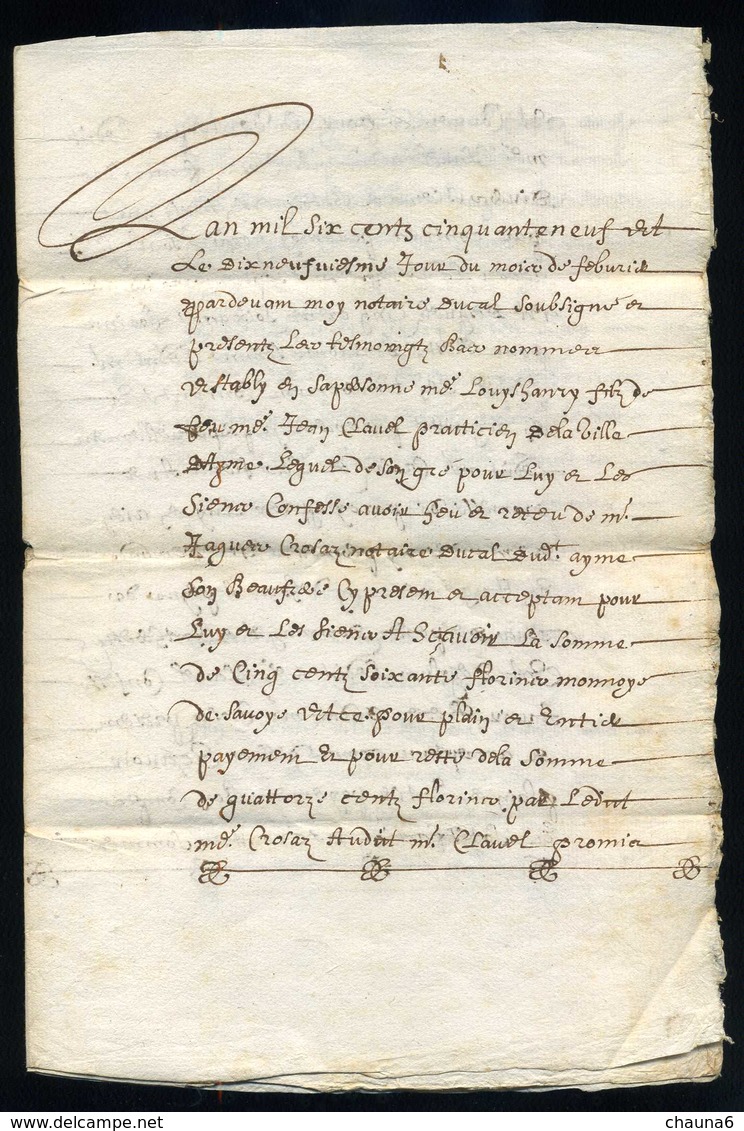 Lan mil six centz cinquante neuf et
Le dix neufviesme Jour du mois de febvrier
pardevant moy notaire ducal soubsigné et
presentz Les tesmoingtz Bas nommes
establÿ en sa personne me. Louys hanry filz de
feu me. Jean Clavel practicien de la ville
dAyme Lequel de son gré pour Luy et Les
Siens Confesse avoir heu et receu de me.
Jaques Crosaz notaire ducal dudt ayme
son Beaufrere Cy present et acceptant pour
Luy et Les siens A Sçavoir La somme
de Cinq centz soixante florins monnoye
de savoye et ce pour plain et Entier
payement Et pour reste de la somme
de quattorze centz florins par Ledict
me. Crosaz Audict me. Clavel promis
chauna6